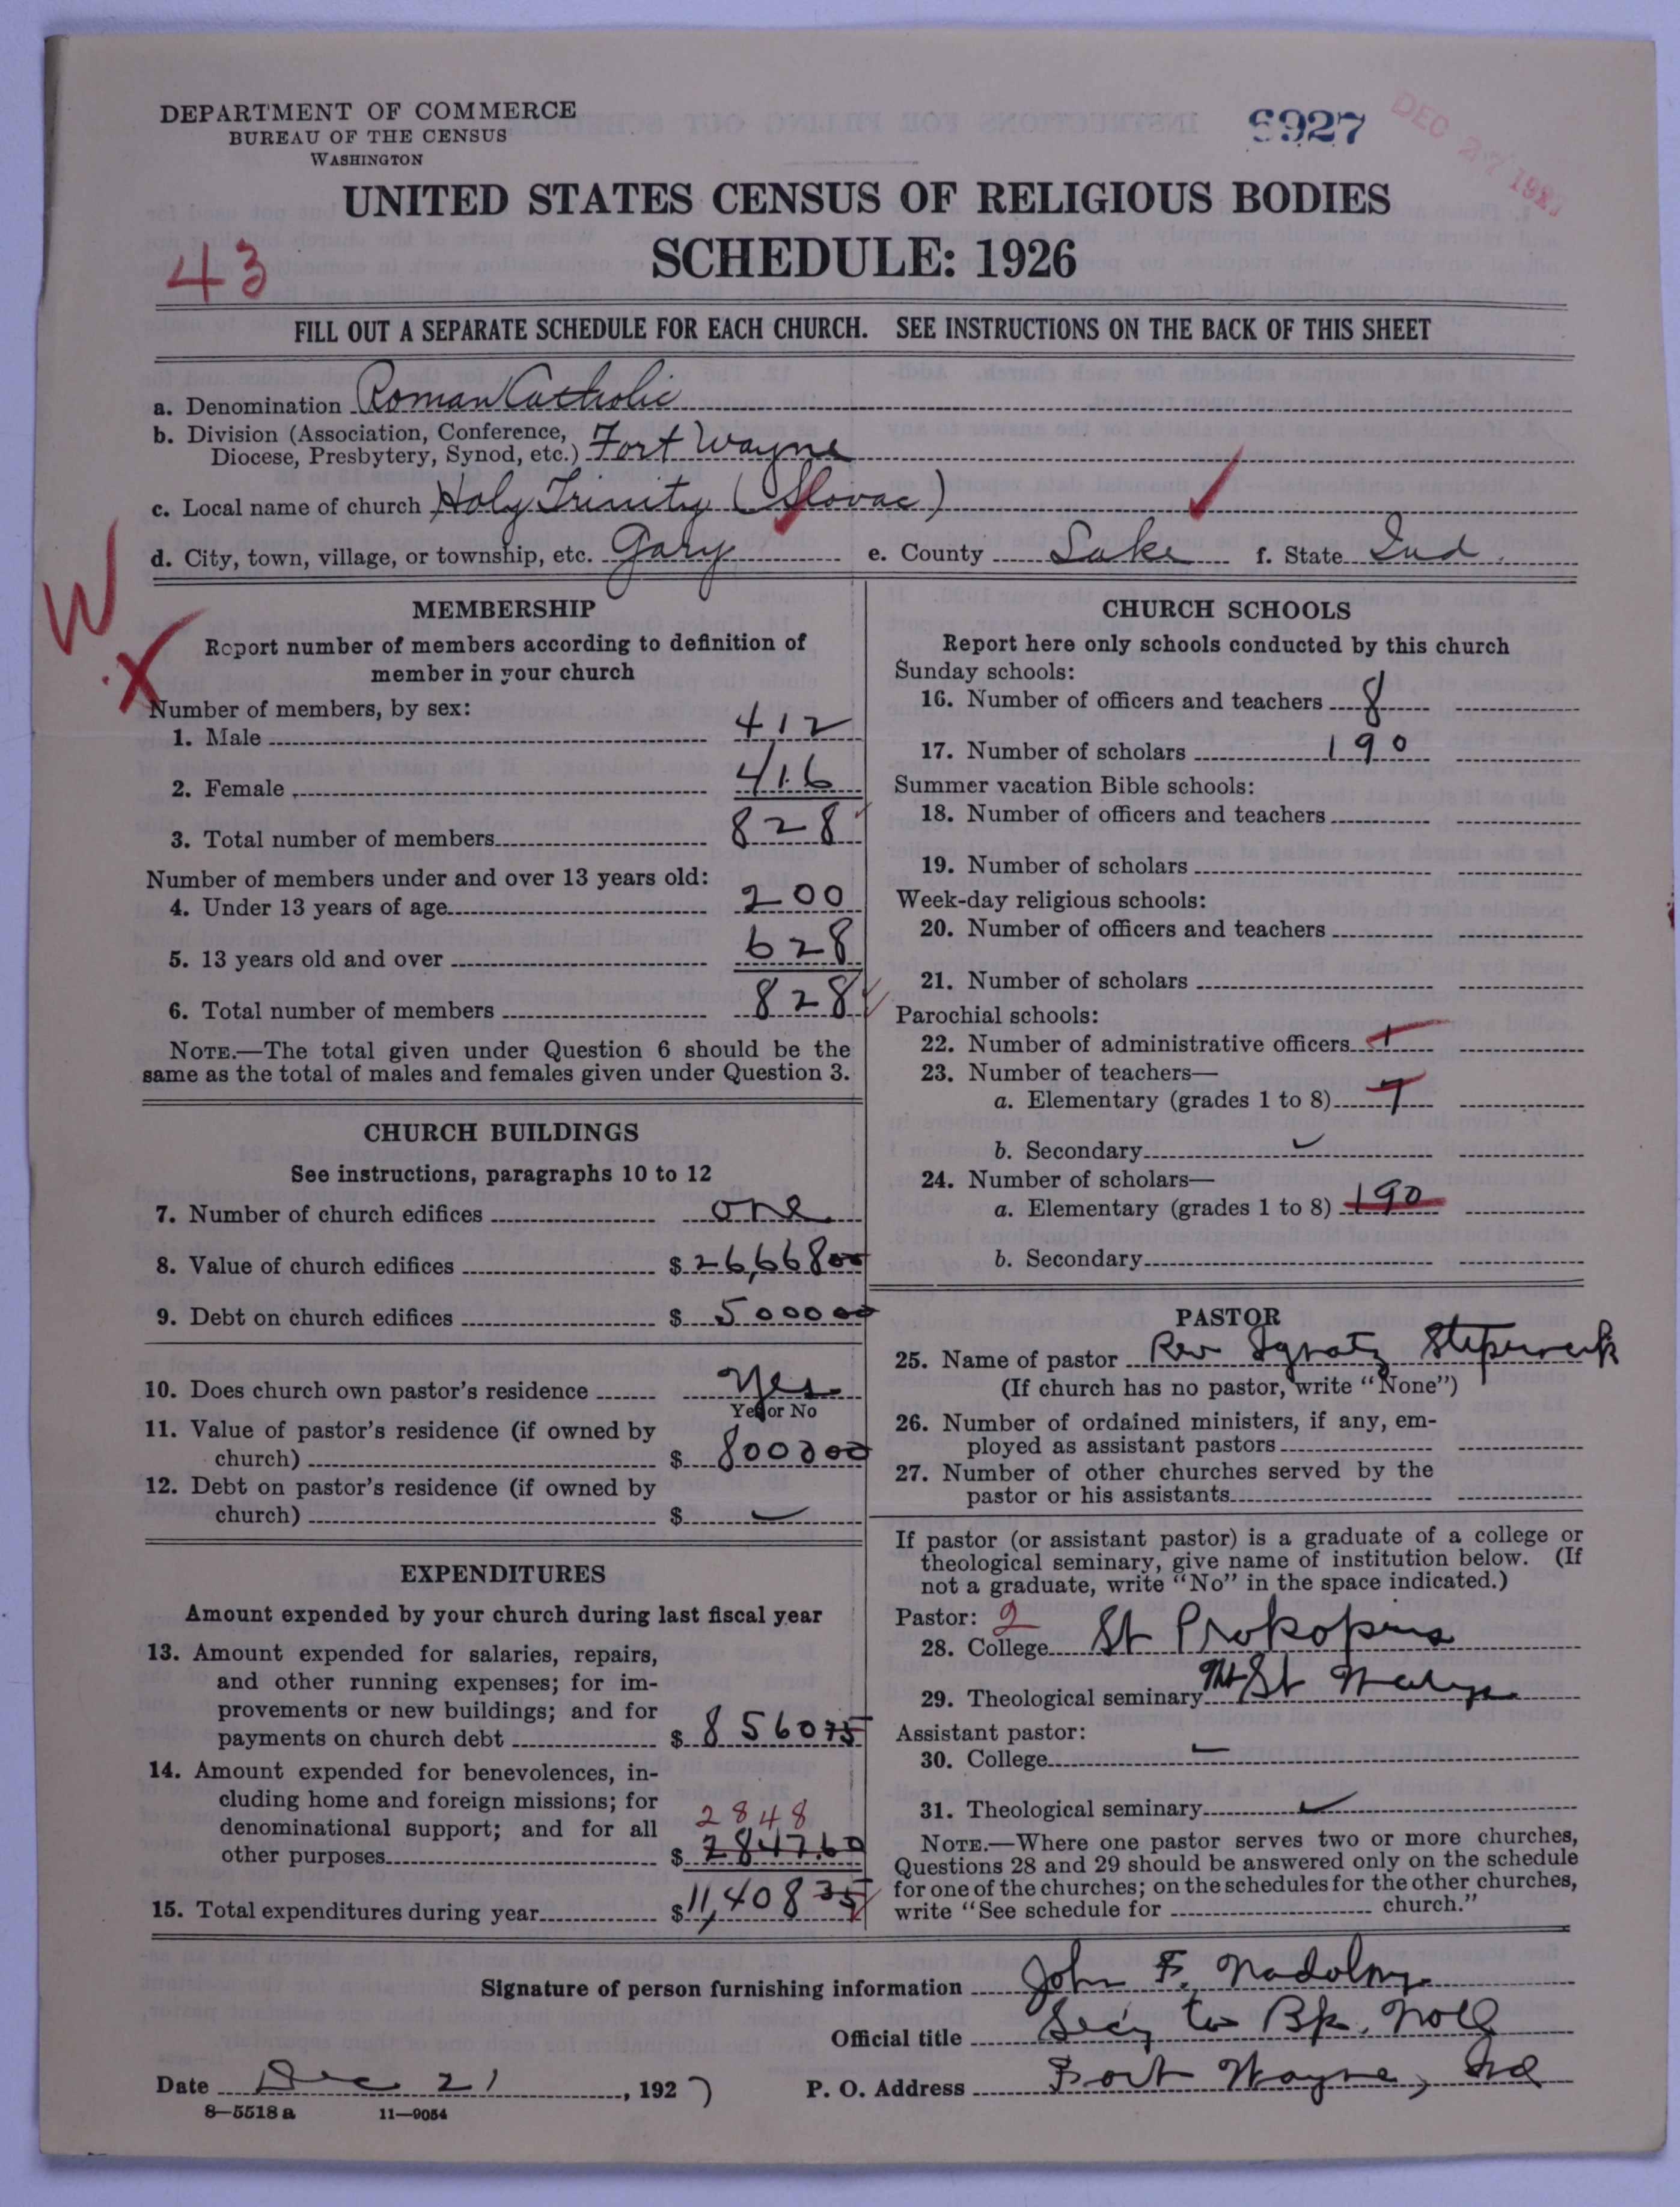 DEPARTMENT OF COMMERCE
BUREAU OF THE CENSUS
WASHINGTON
6927
DEC 27 1927
UNITED STATES CENSUS OF RELIGIOUS BODIES
SCHEDULE: 1926
43
FILL OUT A SEPARATE SCHEDULE FOR EACH CHURCH. SEE INSTRUCTIONS ON THE BACK OF THIS SHEET
a. Denomination Roman Catholic
b. Division (Association, Conference, Diocese, Presbytery, Synod, etc.) Fort Wayne
c. Local name of church Holy Trinity (Slovac)
d. City, town, village, or township, etc. Gary e. County Lake f. State Ind.
W
X
MEMBERSHIP
Report number of members according to definition of
member in your church
Number of members, by sex:
1. Male 412
2. Female 416
3. Total number of members 828
Number of members under and over 13 years old:
4. Under 13 years of age 200
5. 13 years old and over 628
6. Total number of members 828
NOTE.—The total given under Question 6 should be the
same as the total of males and females given under Question 3.
CHURCH BUILDINGS
See instructions, paragraphs 10 to 12
7. Number of church edifices one
8. Value of church edifices $ 26,66800
9. Debt on church edifices $ 500000
10. Does church own pastor's residence Yes
Yes or No
11. Value of pastor's residence (if owned by
church) $ 800000
12. Debt on pastor's residence (if owned by
church) $ —
EXPENDITURES
Amount expended by your church during last fiscal year
13. Amount expended for salaries, repairs,
and other running expenses; for im-
provements or new buildings; and for
payments on church debt $ 856075
14. Amount expended for benevolences, in-
cluding home and foreign missions; for
denominational support; and for all 2848
other purposes $ 2847.60
15. Total expenditures during year $ 11,40835
CHURCH SCHOOLS
Report here only schools conducted by this church
Sunday schools:
16. Number of officers and teachers 8
17. Number of scholars 190
Summer vacation Bible schools:
18. Number of officers and teachers
19. Number of scholars
Week-day religious schools:
20. Number of officers and teachers
21. Number of scholars
Parochial schools:
22. Number of administrative officers 1
23. Number of teachers—
a. Elementary (grades 1 to 8) 7
b. Secondary
24. Number of scholars—
a. Elementary (grades 1 to 8) 190
b. Secondary
PASTOR
25. Name of pastor Rev Ignatz
(If church has no pastor, write "None")
26. Number of ordained ministers, if any, em-
ployed as assistant pastors
27. Number of other churches served by the
pastor or his assistants
If pastor (or assistant pastor) is a graduate of a college or
theological seminary, give name of institution below. (If
not a graduate, write "No" in the space indicated.)
Pastor: 2
28. College St Prokopius
29. Theological seminary Mt St Marys
Assistant pastor:
30. College —
31. Theological seminary
NOTE.—Where one pastor serves two or more churches,
Questions 28 and 29 should be answered only on the schedule
for one of the churches; on the schedules for the other churches,
write "See schedule for church."
Signature of person furnishing information John F. Nadolny
Official title Sec'y to Bp. Noll
Date Dec 21, 1927 P. O. Address Fort Wayne, Ind
8—5518 a 11—9054